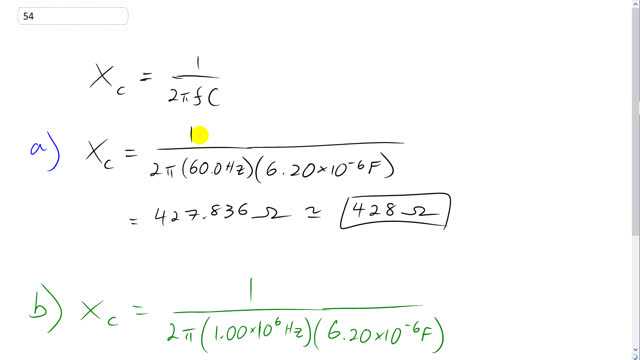 54
X_c = 1 / 2πfC
a) X_c = 1 / 2π(60.0Hz)(6.20×10⁻⁶F)
= 427.836Ω ≃ 428Ω
b) X_c = 1 / 2π(1.00×10⁶Hz)(6.20×10⁻⁶F)